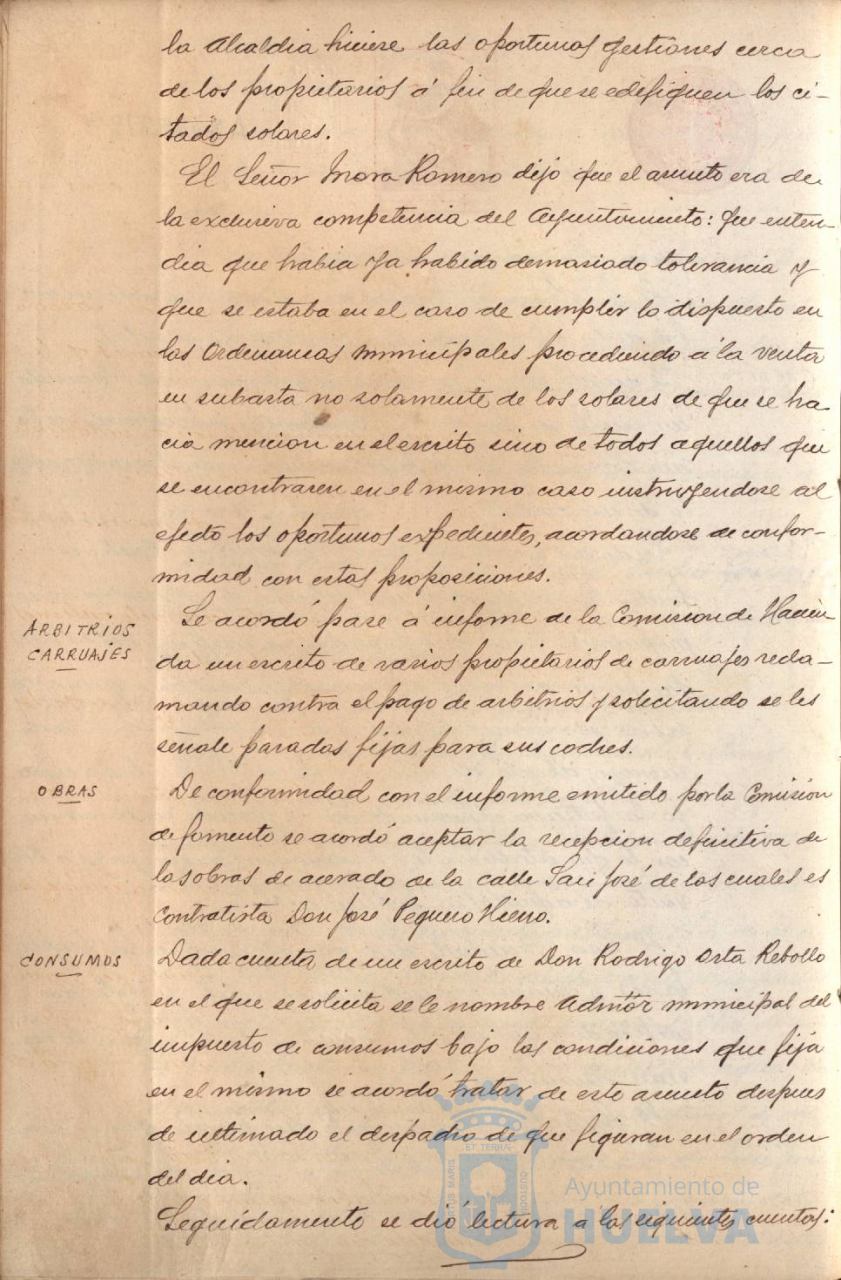 la Alcaldia hiciese las oportunas gestiones cerca
de los propietarios á fin de que se edifiquen los ci-
tados solares.
El Señor Mora Romero dijo que el asunto era de
la exclusiva competencia del Ayuntamiento: que enten-
dia que habia ya habido demasiado tolerancia y
que se estaba en el caso de cumplir lo dispuesto en
las Ordenanzas municipales procediendo á la venta
en subasta no solamente de los solares de que se ha
cia mencion en el escrito sino de todos aquellos que
se encontrasen en el mismo caso instruyendose al
efecto los oportunos expedientes, acordandose de confor-
midad con estas proposiciones.
ARBITRIOS
CARRUAJES
Se acordó pase á informe de la Comision de Hacien-
da un escrito de varios propietarios de carruajes recla-
mando contra el pago de arbitrios y solicitando se les
señale paradas fijas para sus coches.
OBRAS
De conformidad con el informe emitido por la Comision
de fomento se acordó aceptar la recepcion definitiva de
las obras de acerado de la calle San José de las cuales es
Contratista Don José Peguero Hierro.
CONSUMOS
Dada cuenta de un escrito de Don Rodrigo Orta Rebollo
en el que se solicita se le nombre Admtor municipal del
impuesto de consumos bajo las condiciones que fija
en el mismo se acordó tratar de este asunto despues
de ultimado el despacho de que figuran en el orden
del dia.
Seguidamente se dió lectura a las siguientes cuentas:
ET TERRÆ
MARIS
CUSTODIA
Ayuntamiento de
HUELVA